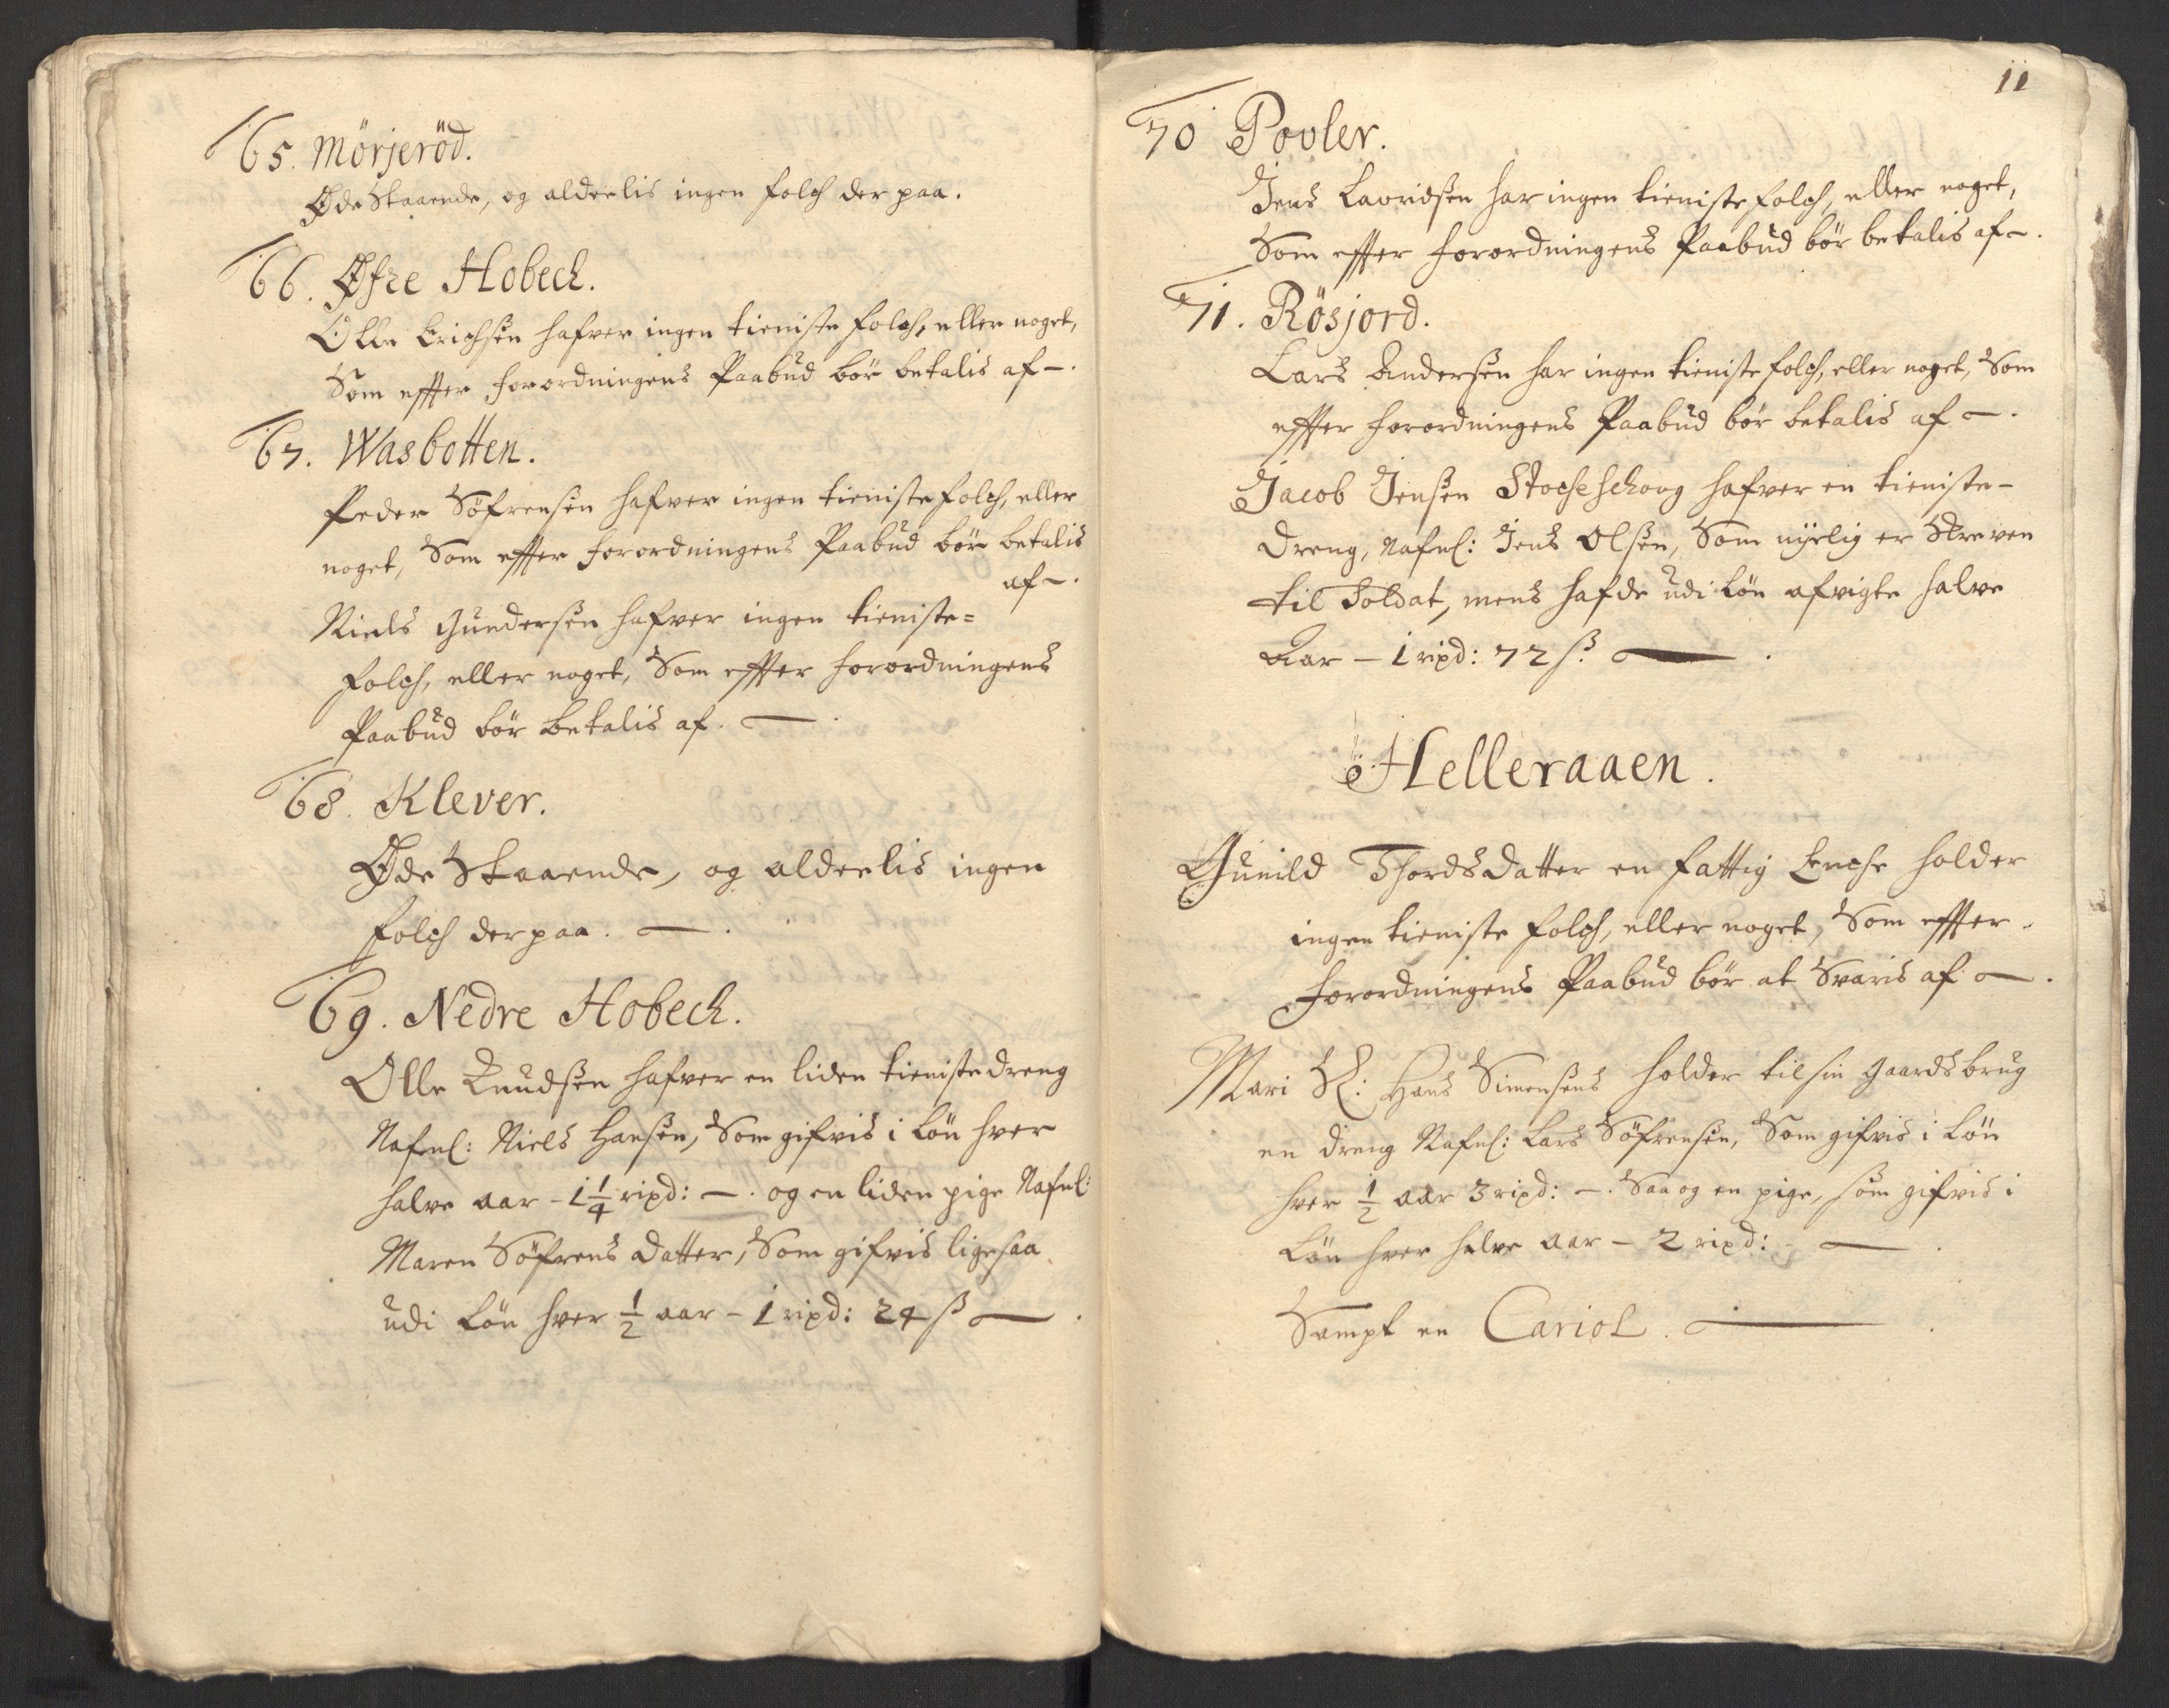 65. Mörjeröd.
Øde Staaende, og alderlis ingen folch der paa.
66. Øfre Hobech.
Olle Erichsen hafver ingen tieniste folch, eller noget,
Som effter forordningens Paabud bör betalis af –.
67. Wasbotten.
Peder Söfrensen hafver ingen tieniste folch, eller
noget, Som effter forordningens Paabud bör betalis
af –.
Niels Gundersen hafver ingen tieniste=
folch, eller noget, Som effter forordningens
Paabud bör betalis af. —.
68. Klever.
Øde Staaende, og alderlis ingen
folch der paa. —.
69. Nedre Hobech.
Olle Knudsen hafver en liden tieniste dreng
Nafnl: Niels Hansen, Som gifvis i Lön hver
halve aar – 1 1/4 rixd: —. og en liden pige Nafnl:
Maren Söfrens Datter, Som gifvis ligesaa
udi Lön hver 1/2 aar – 1 rixd: 24 ß —.
11
70 Povler.
Jens Lavridsen har ingen tieniste folch, eller noget,
Som effter forordningens Paabud bör betalis af –.
71. Rösjord.
Lars Andersen har ingen tieniste folch, eller noget, Som
effter forordningens Paabud bör betalis af –.
Jacob Jensen Stocheschoug hafver en tieniste-
Dreng, Nafnl: Jens Olsen, Som nyelig er Skreven
til Soldat, mens hafde udi Lön afvigte halve
Aar – 1 rixd: 72 ß. —.
Helleraaen.
Gunild Thords Datter en fattig Enche holder
ingen tieniste folch, eller noget, Som effter
forordningens Paabud bör at Svaris af —.
Mari Sl: Hans Simensens holder til sin gaards brug
en dreng Nafnl: Lars Söfrensen, Som gifvis i Lön
hver 1/2 aar 3 rixd: –. Saa og en pige, som gifvis i
Lön hver halve aar – 2 rixd: —.
Sampt en Cariol. —.